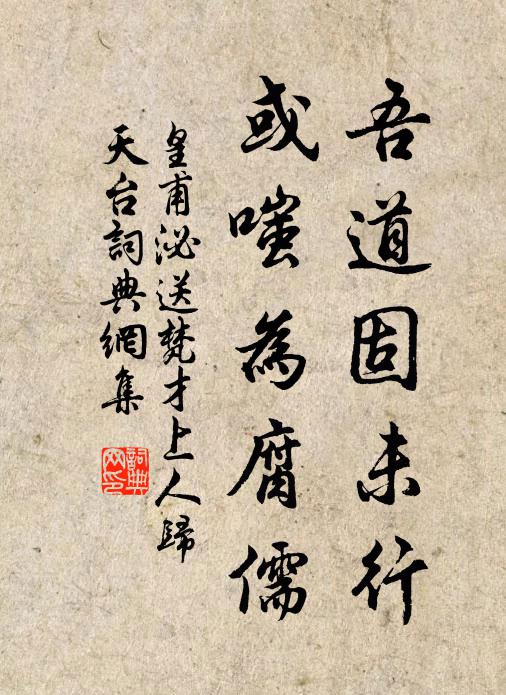 吾道固未行
或嗤為腐儒
皇甫泌送梵才上人歸
天台詞典網集
詞典網印